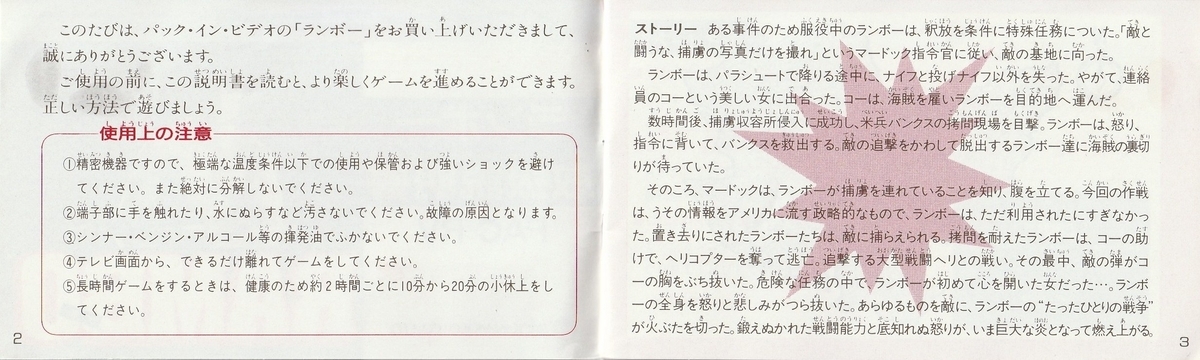 このたびは、パック・イン・ビデオの「ランボー」をお買い上げいただきまして、
誠にありがとうございます。
ご使用の前に、この説明書を読むと、より楽しくゲームを進めることができます。
正しい方法で遊びましょう。
使用上の注意
①精密機器ですので、極端な温度条件以下での使用や保管および強いショックを避け
てください。また絶対に分解しないでください。
②端子部に手を触れたり、水にぬらすなど汚さないでください。故障の原因となります。
③シンナー・ベンジン・アルコール等の揮発油でふかないでください。
④テレビ画面から、できるだけ離れてゲームをしてください。
⑤長時間ゲームをするときは、健康のため約2時間ごとに10分から20分の小休止をし
てください。
2
ストーリー ある事件のため服役中のランボーは、釈放を条件に特殊任務についた。「敵と
闘うな、捕虜の写真だけを撮れ」というマードック指令官に従い、敵の基地に向った。
ランボーは、パラシュートで降りる途中に、ナイフと投げナイフ以外を失った。やがて、連絡
員のコーという美しい女に出合った。コーは、海賊を雇いランボーを目的地へ運んだ。
数時間後、捕虜収容所侵入に成功し、米兵バンクスの拷問現場を目撃。ランボーは、怒り、
指令に背いて、バンクスを救出する。敵の追撃をかわして脱出するランボー達に海賊の裏切
りが待っていた。
そのころ、マードックは、ランボーが捕虜を連れていることを知り、腹を立てる。今回の作戦
は、うその情報をアメリカに流す政略的なもので、ランボーは、ただ利用されたにすぎなかっ
た。置き去りにされたランボーたちは、敵に捕らえられる。拷問を耐えたランボーは、コーの助
けで、ヘリコプターを奪って逃亡。追撃する大型戦闘ヘリとの戦い。その最中、敵の弾がコ
ーの胸をぶち抜いた。危険な任務の中で、ランボーが初めて心を開いた女だった…。ランボ
ーの全身を怒りと悲しみがつら抜いた。あらゆるものを敵に、ランボーの“たったひとりの戦争”
が火ぶたを切った。鍛えぬかれた戦闘能力と底知れぬ怒りが、いま巨大な炎となって燃え上がる。
3